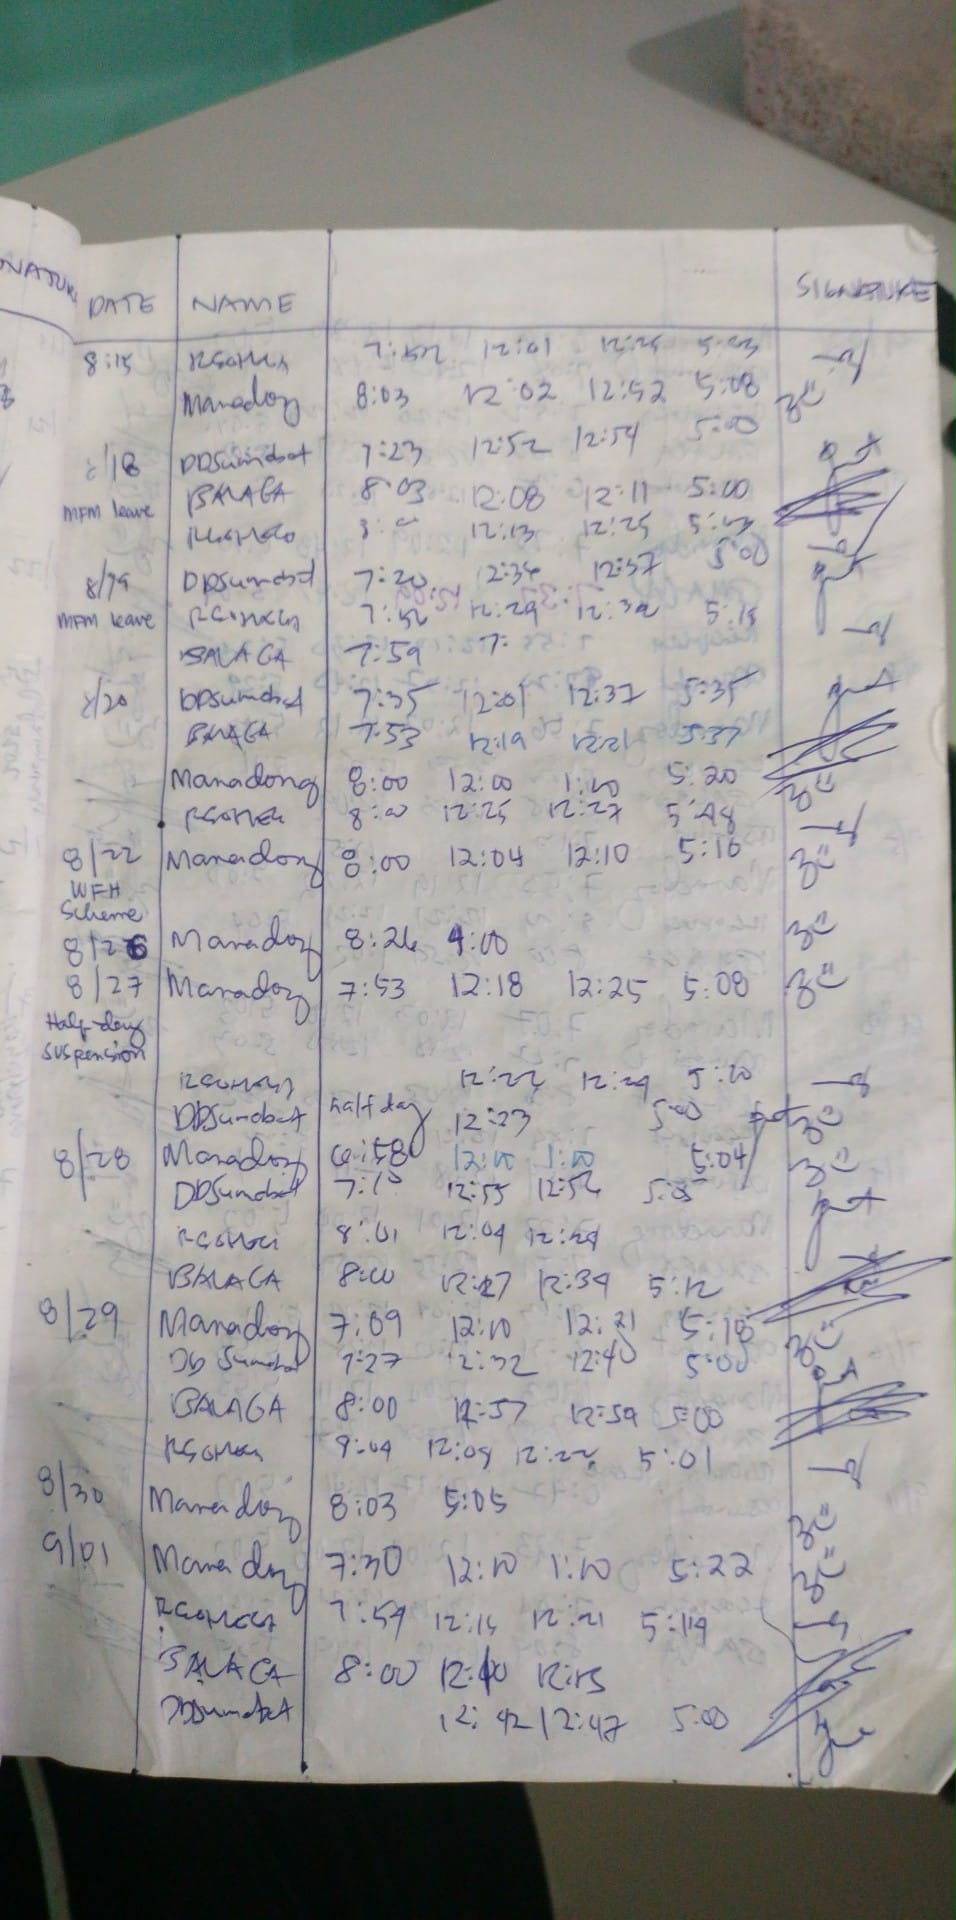 DATE NAME SIGNATURE
8:15 7:52 12:01 12:25 5:03
Manadong 8:03 12:02 12:52 5:08
8/18 DDSumobat 7:23 12:52 12:54 5:00
BALAGA 8:03 12:08 12:11 5:00
MFM leave
12:13 12:25
8/19 DDSumobat 7:20 12:36 12:37 5:00
MFM leave 12:29 5:15
BALAGA 7:59
8/20 DDSumobat 7:35 12:01 12:37 5:35
BALAGA 7:53 12:19 12:21 5:37
Manadong 8:00 12:00 1:00 5:20
8:00 12:25 12:27 5:48
8/22 Manadong 8:00 12:04 12:10 5:16
WFH
Scheme
8/26 Manadong 8:26 4:00
8/27 Manadong 7:53 12:18 12:25 5:08
Half-day
suspension
12:22 12:29 5:20
DDSumobat half day 12:23 5:00
8/28 Manadong 6:58 12:10 1:10 5:04
DDSumobat 12:55 12:56
8:01 12:04
BALAGA 8:00 12:27 12:34 5:12
8/29 Manadong 7:09 12:10 12:21 5:18
DD Sumobat 7:27 12:32 12:40 5:00
BALAGA 8:00 12:57 12:59 5:00
9:04 12:09 12:22 5:01
8/30 Manadong 8:03 5:05
9/01 Manadong 7:30 12:10 1:10 5:22
7:59 12:15 12:21 5:19
BALAGA 8:00 12:10 12:15
DDSumobat 12:42 12:47 5:00